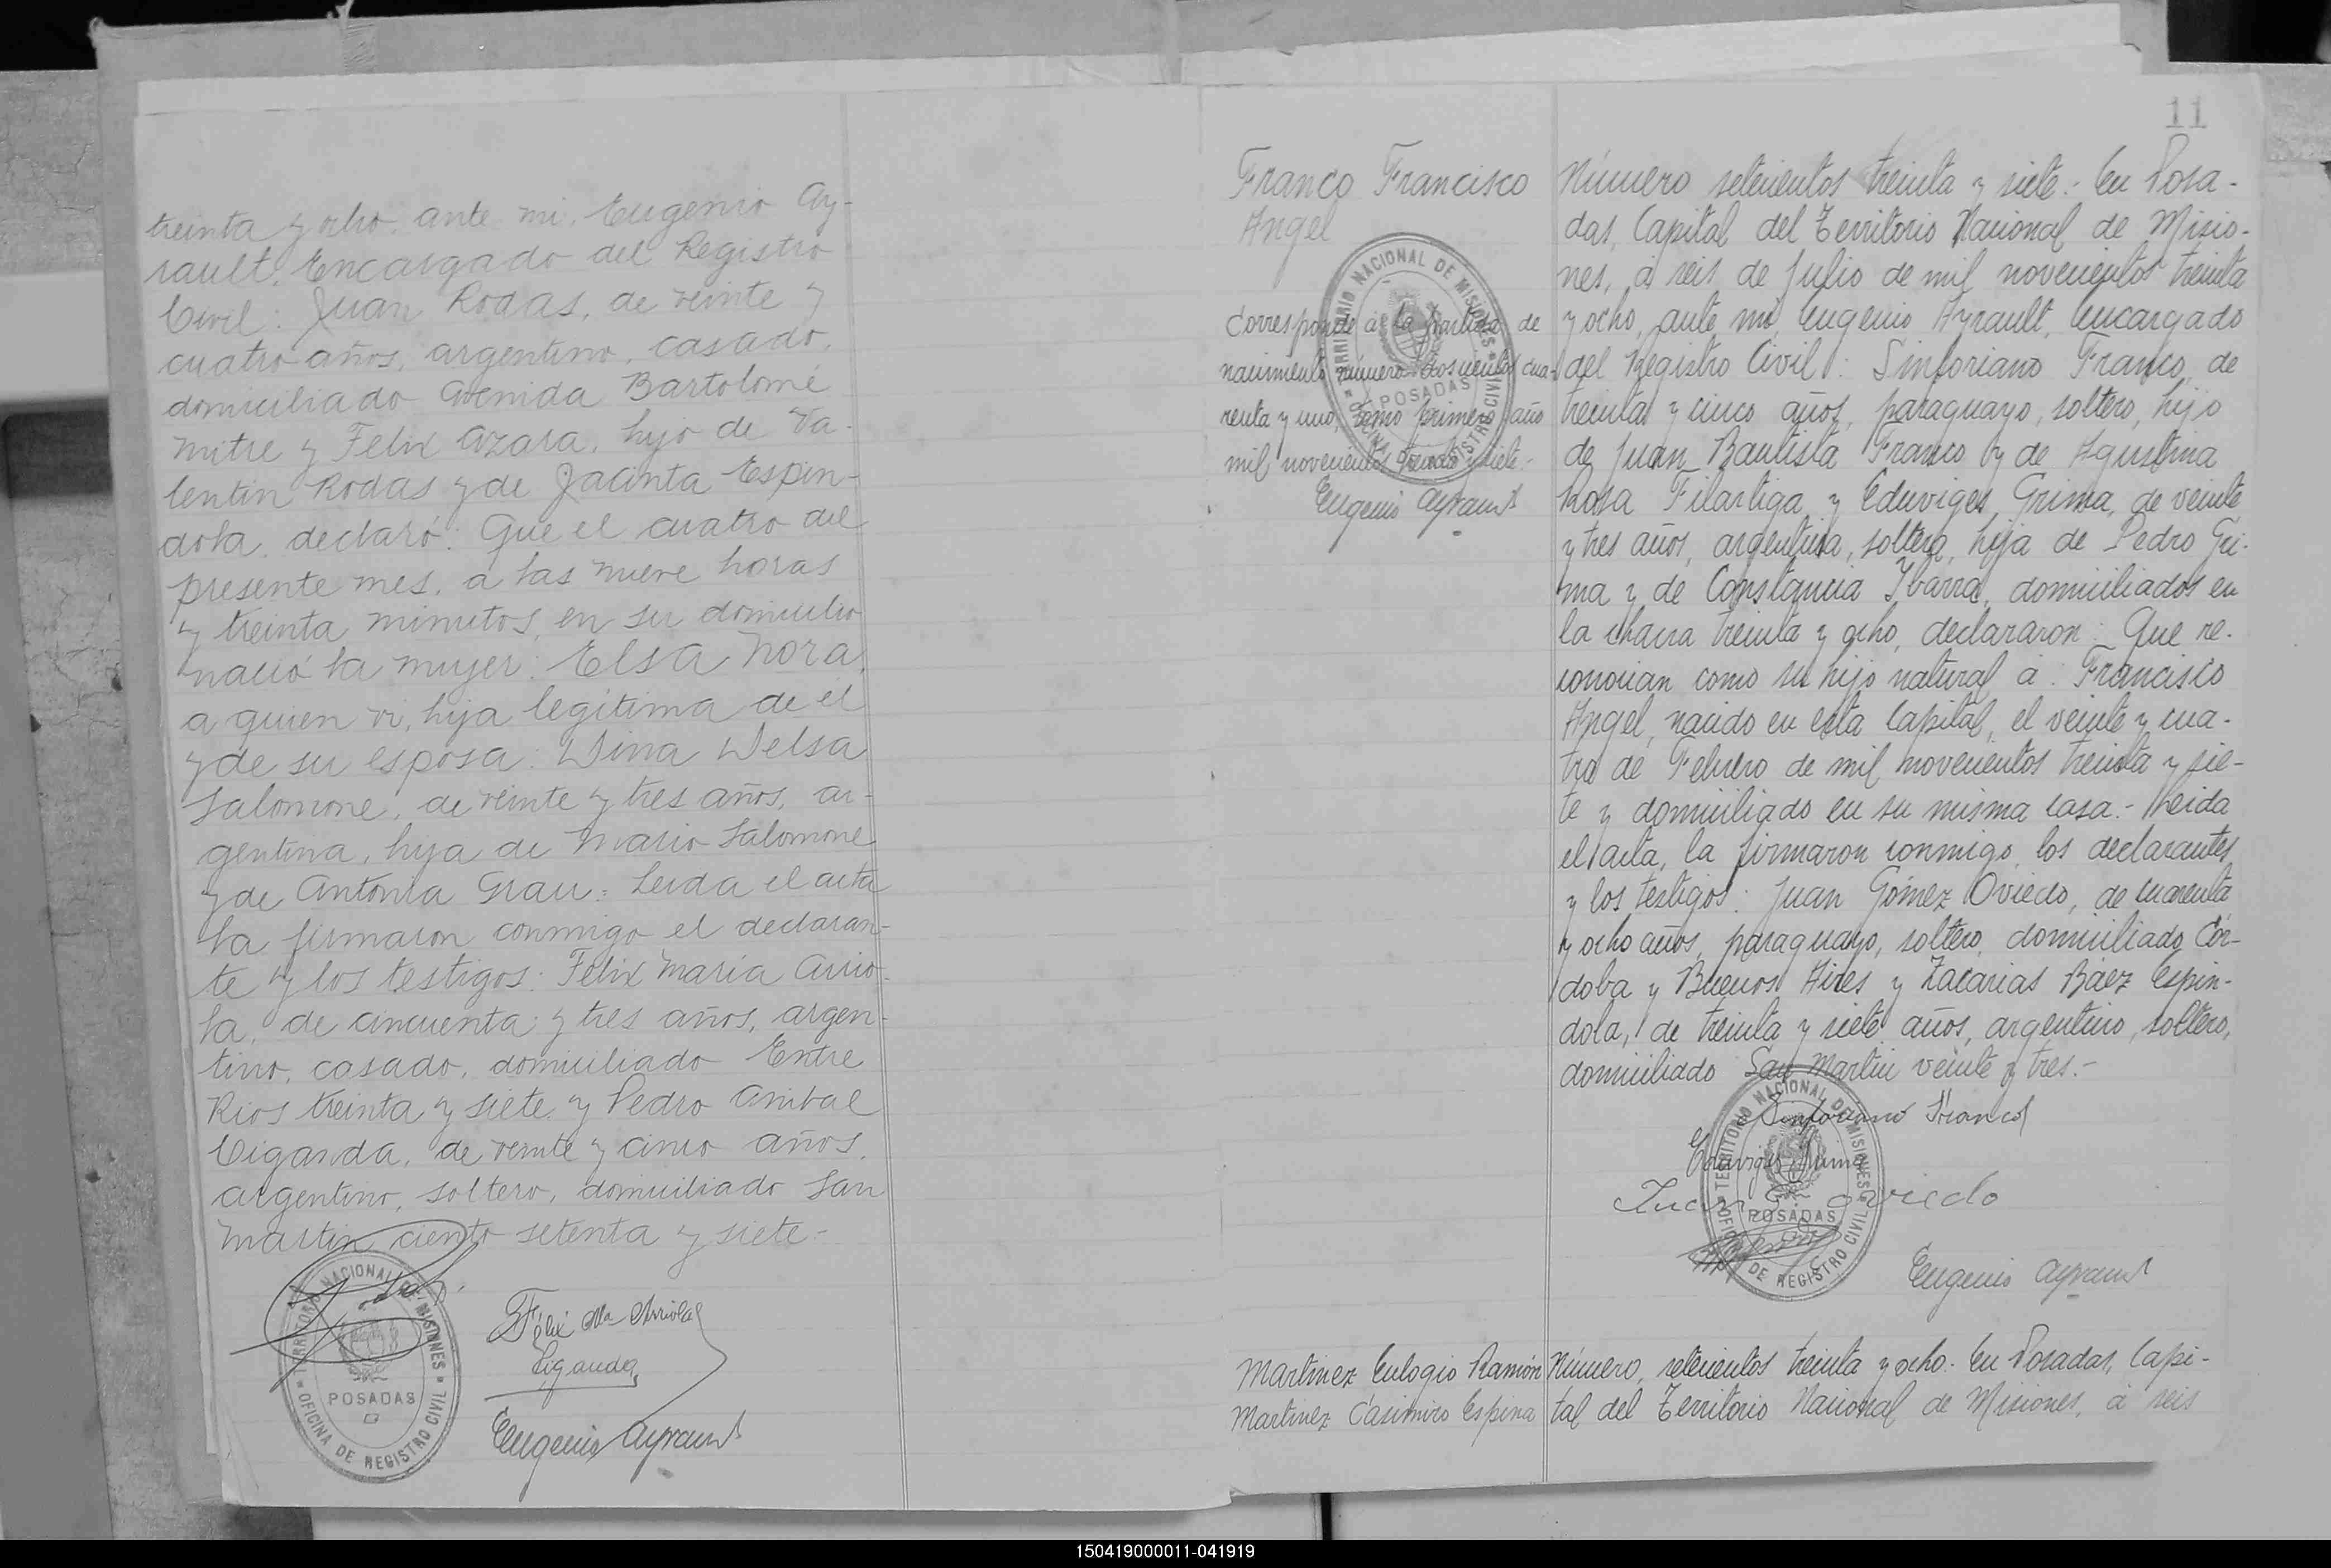 treinta y ocho, ante mi, Eugenio Ay-
rault, Encargado del Registro
Civil: Juan Rodas, de veinte y
cuatro años, argentino, casado,
domiciliado Avenida Bartolomé
Mitre y Felix Azara, hijo de Va-
lentin Rodas y de Jacinta Espin-
dola, declaró: Que el cuatro del
presente mes, a las nueve horas
y treinta minutos, en su domicilio
nació la mujer: Elsa Nora,
a quien vi, hija legítima de él
y de su esposa: Dina Delsa
Salomone, de veinte y tres años, ar-
gentina, hija de Mario Salomone
y de Antonia Grau: Leida el acta
la firmaron conmigo el declaran-
te y los testigos: Felix Maria Arrio-
la, de cincuenta y tres años, argen-
tino, casado, domiciliado Entre
Rios treinta y siete y Pedro Anibal
Viganda, de veinte y cinco años,
argentino, soltero, domiciliado San
Martin ciento setenta y siete-
TERRITORIO NACIONAL DE MISIONES
POSADAS
OFICINA DE REGISTRO CIVIL
Félix Ma Arriola
Viganda
Eugenio Ayrault
11
Franco Francisco
Angel
TERRITORIO NACIONAL DE MISIONES
POSADAS
OFICINA DE REGISTRO CIVIL
Corresponde á la partida de
nacimiento número doscientos cua-
renta y uno, tomo primero año
mil novecientos treinta y siete.-
Eugenio Ayrault
Número setecientos treinta y siete.- En Posa-
das, Capital del Territorio Nacional de Misio-
nes, á seis de Julio de mil novecientos treinta
y ocho, ante mi, Eugenio Ayrault, Encargado
del Registro Civil: Sinforiano Franco, de
treinta y cinco años, paraguayo, soltero, hijo
de Juan Bautista Franco y de Agustina
Rosa Filartiga y Eduviges Grima, de veinte
y tres años, argentina, soltera, hija de Pedro Gri-
ma y de Constancia Ibarra, domiciliados en
la chacra treinta y ocho, declararon: Que re-
conocian como su hijo natural á: Francisco
Angel, nacido en esta Capital, el veinte y cua-
tro de Febrero de mil novecientos treinta y sie-
te y domiciliado en su misma casa.- Leida
el acta, la firmaron conmigo, los declarantes
y los testigos: Juan Gómez Oviedo, de cuarenta
y ocho años, paraguayo, soltero, domiciliado Cór-
doba y Buenos Aires y Zacarias Báez Espin-
dola, de treinta y siete años, argentino, soltero,
domiciliado San Martin veinte y tres.-
Sinforiano Franco
Eduviges Grima
Juan G. Oviedo
TERRITORIO NACIONAL DE MISIONES
POSADAS
OFICINA DE REGISTRO CIVIL
Eugenio Ayrault
Martinez Eulogio Ramón
Martinez Casimiro Espina
Número, setecientos treinta y ocho.- En Posadas, Capi-
tal del Territorio Nacional de Misiones, á seis
150419000011-041919